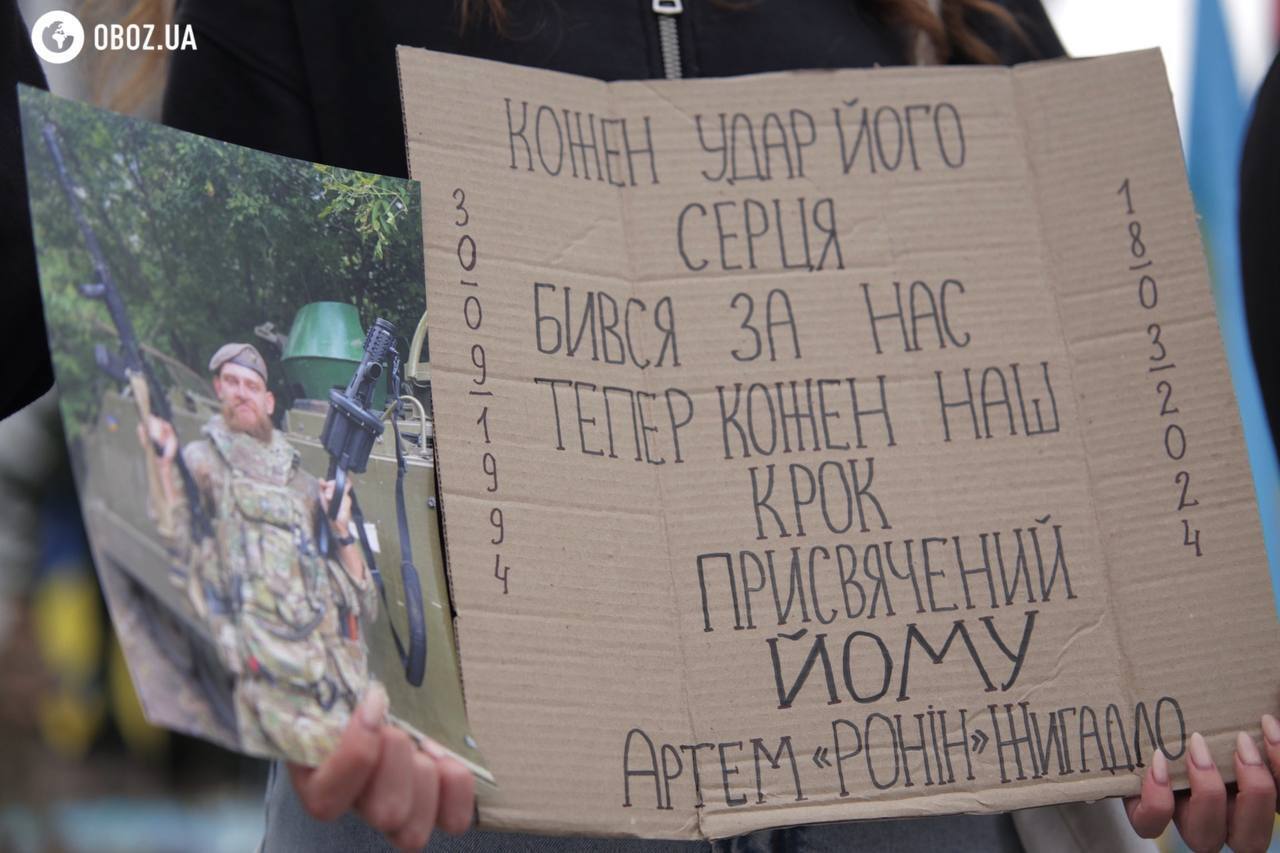 OBOZ.UA
КОЖЕН УДАР ЙОГО
СЕРЦЯ
БИВСЯ ЗА НАС
ТЕПЕР КОЖЕН НАШ
КРОК
ПРИСВЯЧЕНИЙ
ЙОМУ
АРТЕМ «РОНІН» ЖИГАДЛО
30-09-1994
18-03-2024